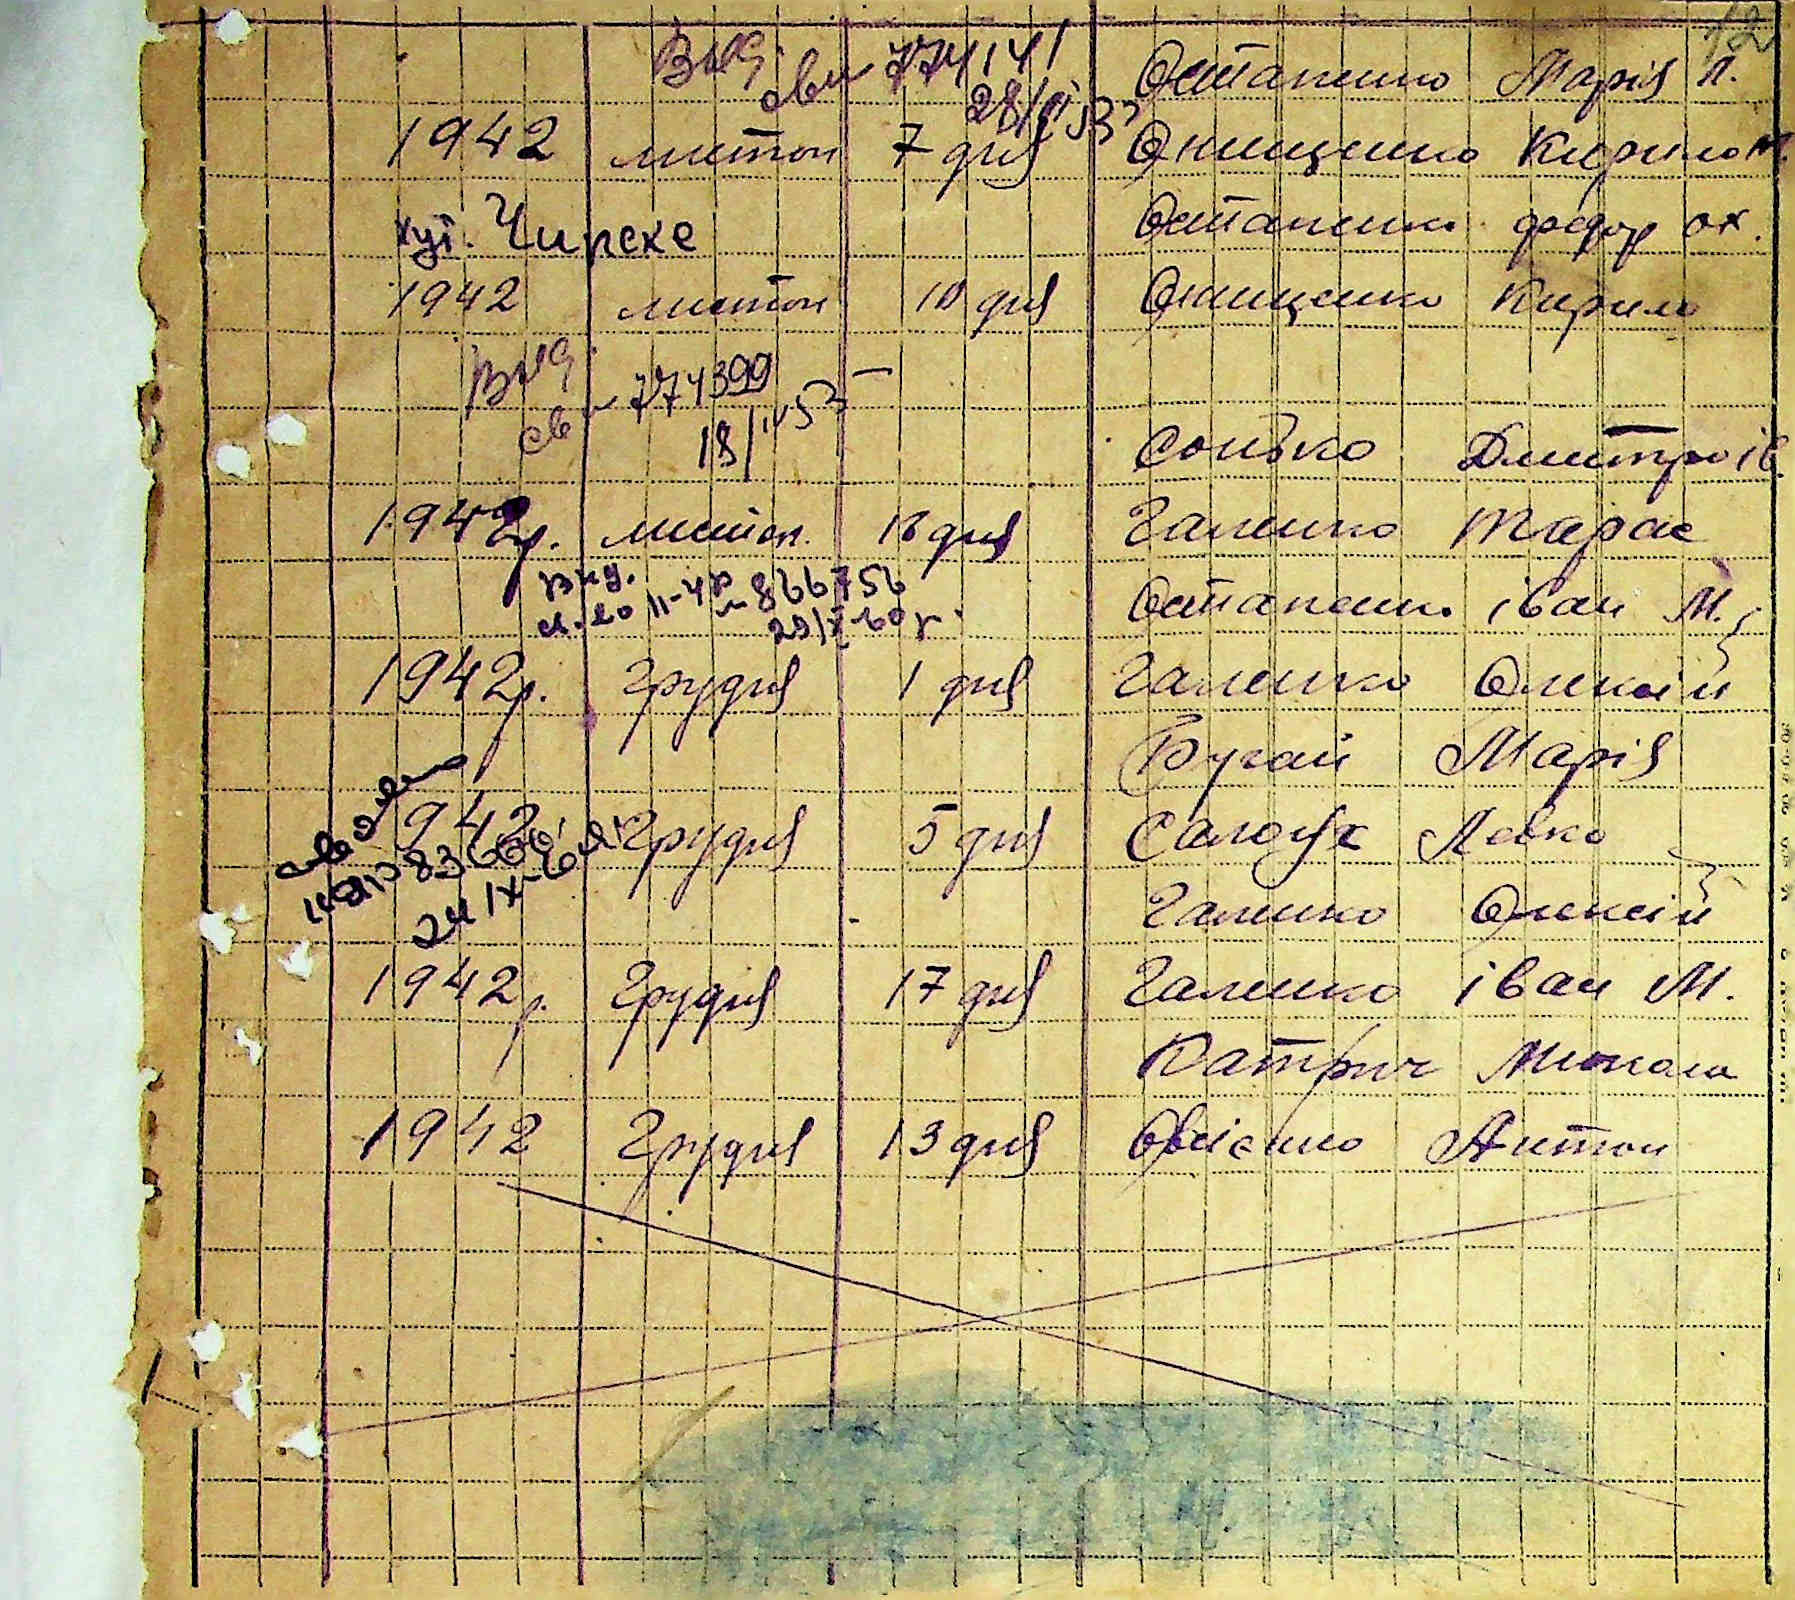 12
Вид Остапенко Марія П.
св № 774141
28/ 53
1942 листоп 7 дня Онищенко Кирило М.
хут. Чирске Остапенко федор ох.
1942 листоп 10 дня Онищенко Кирило
Вид
св № 774399
18/IV 53 Сонько Дмитро ів.
1942р. листоп. 18 дня Галенко Тарас
вид. Остапенко іван М.
II-ЧР № 866756
29/X-60 г.
1942р. Грудня 1 дня Галенко Олексій
Бугай Марія
1942 Грудня 5 дня Салогуб Левко
24 IX Галенко Олексій
1942р. Грудня 17 дня Галенко іван М.
Катрич Микола
1942 Грудня 13 дня Овсієнко Антон